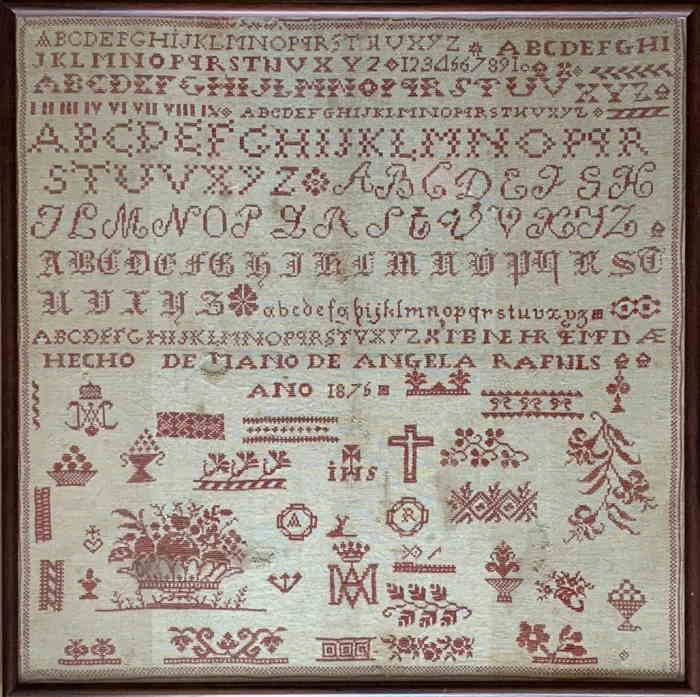 ABCDEFGHIJKLMNOPQRSTUVXYZ ABCDEFGHI
JKLMNOPQRSTUVXYZ 1234567891o
ABCDEFGHIJKLMNOPQRSTUV XYZ
I II III IV VI VII VIII IX ABCDEFGHIJKLMNOPQRSTUVXYZ
ABCDEFGHIJKLMNOPQR
STUVXYZ ABCDEFGH
JLMNOPQRSTUVXYZ
ABCDEFGHIJKLMNOPQRST
UVXYZ abcdefghijklmnopqrstuvxyz
ABCDEFGHIJKLMNOPQRSTVXYZ
HECHO DE MANO DE ANGELA
AÑO 1876
IHS
A R